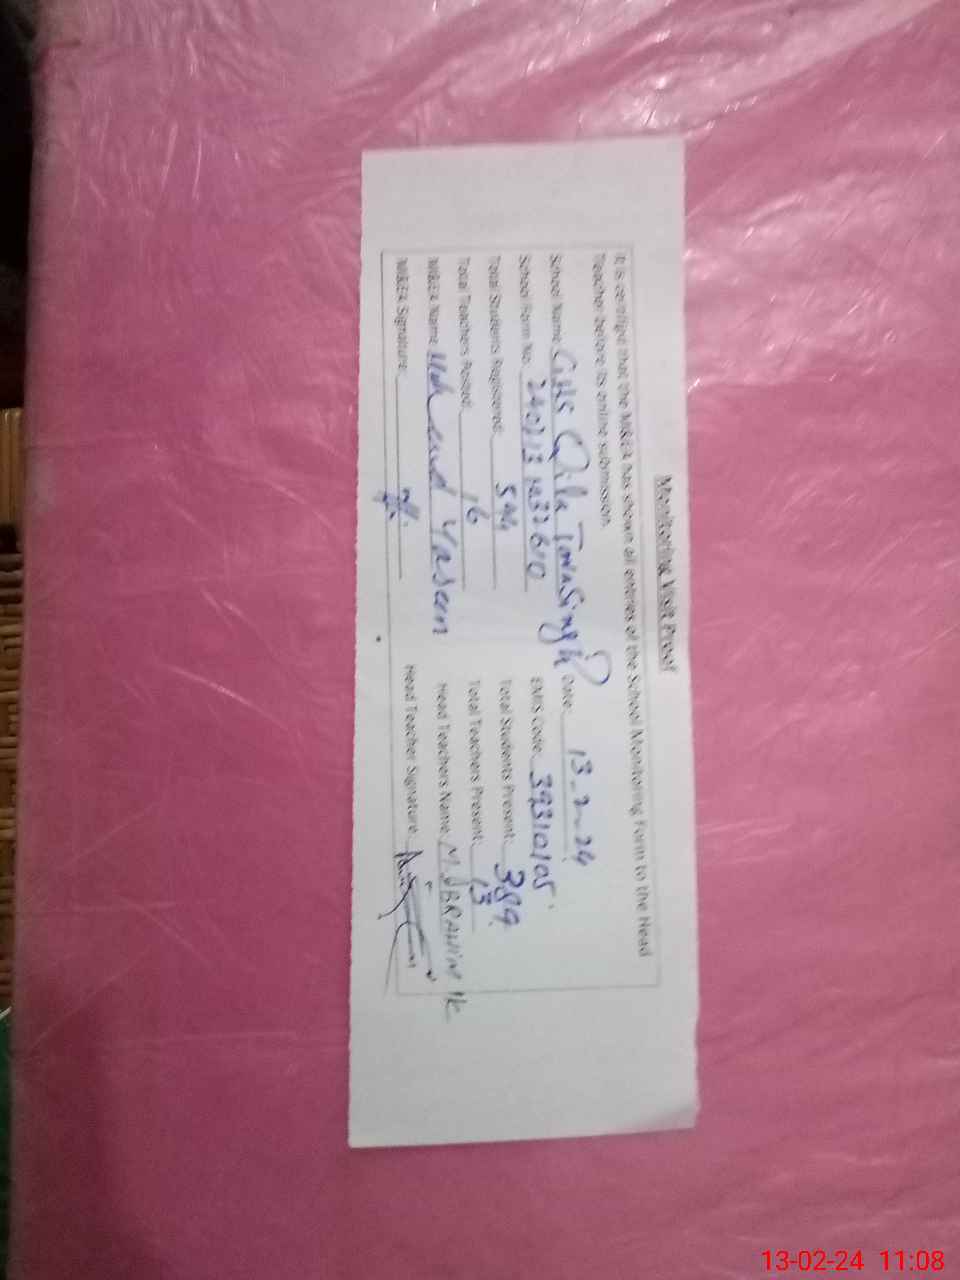 Monitoring Visit Proof
It is certified that the M&EA has shown all entries of the School Monitoring Form to the Head
Teacher before its online submission.
School Name: GHS Qila Tara Singh Date: 13-2-24
School Form No. EMIS Code: 39310105
Total Students Registered: 544 Total Students Present: 389
Total Teachers Posted: 16 Total Teachers Present: 13
M&EA Name Yaseen Head Teachers Name M. IBRAHIM
M&EA Signature: Head Teacher Signature:
13-02-24 11:08